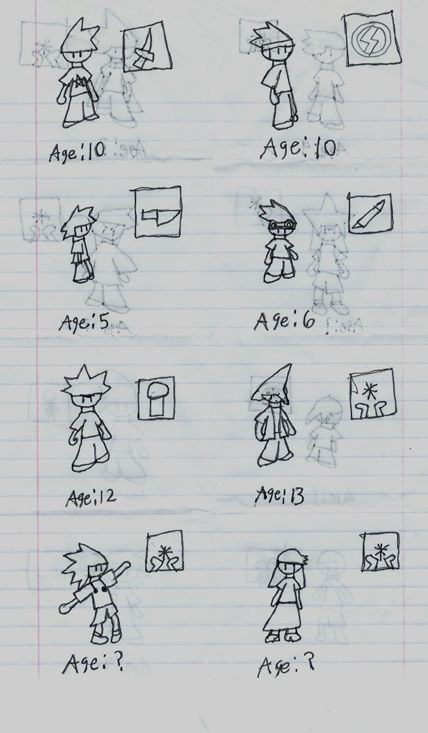 Age:10
Age:10
Age:5
Age:6
Age:12
Age:13
Age:?
Age:?